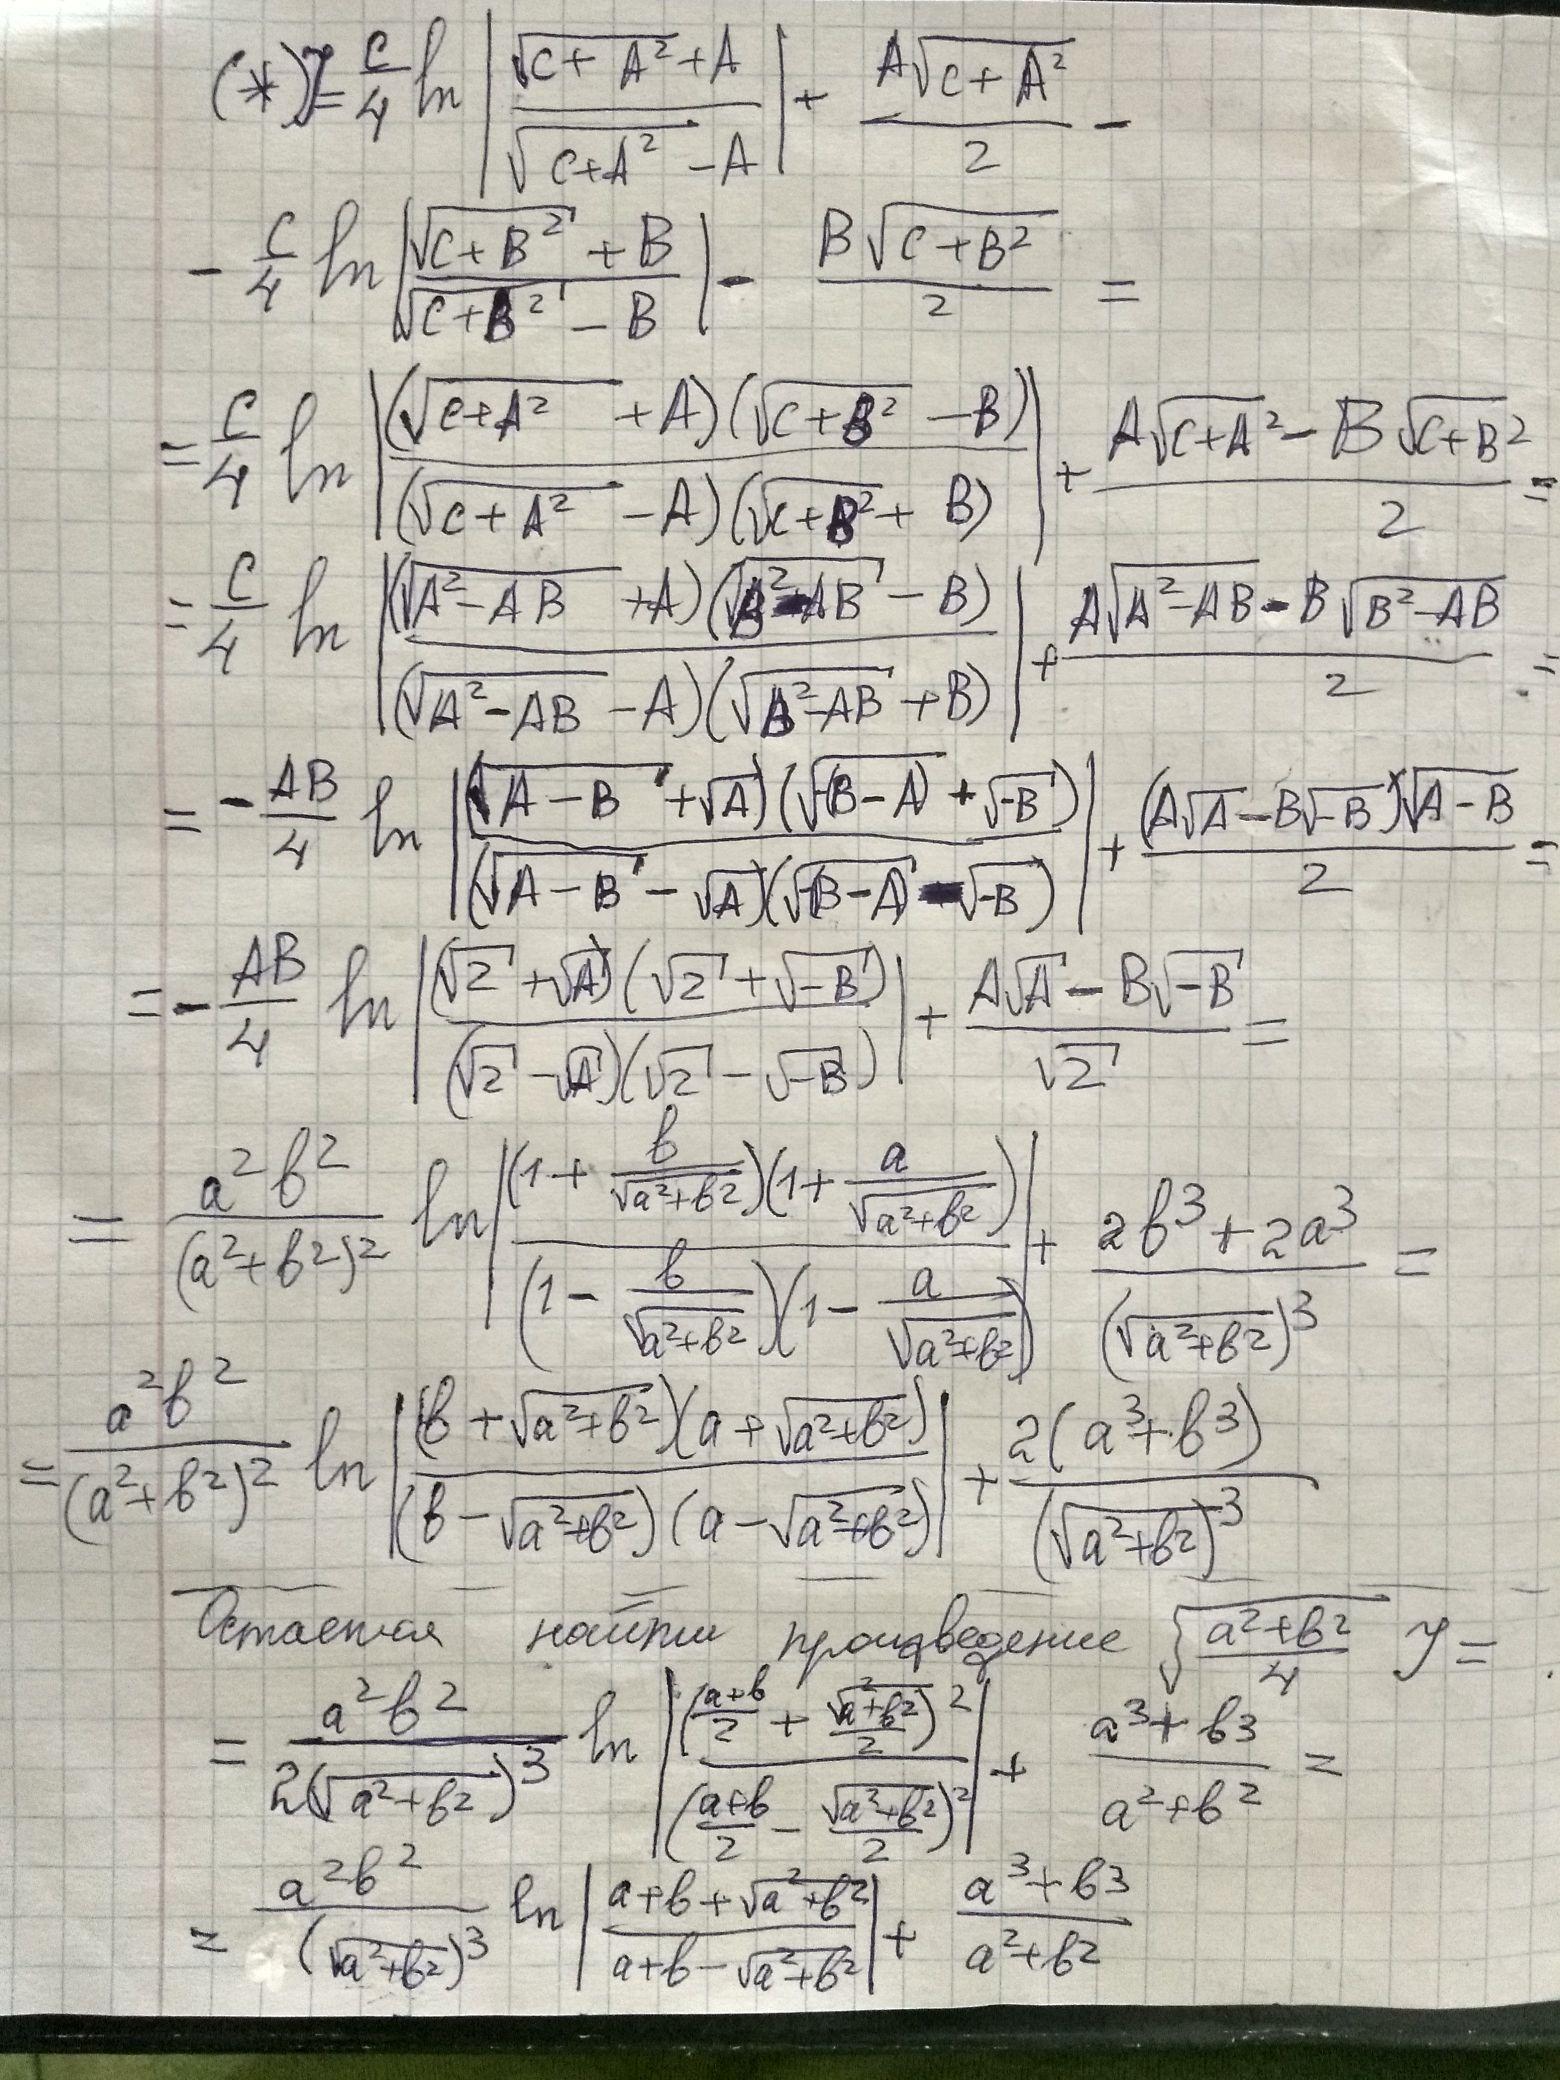 (*) = C/4 ln |(√(C+A²) + A)/(√(C+A²) - A)| + A√(C+A²)/2 -
- C/4 ln |(√(C+B²) + B)/(√(C+B²) - B)| - B√(C+B²)/2 =
= C/4 ln |(√(C+A²) + A)(√(C+B²) - B)/((√(C+A²) - A)(√(C+B²) + B))| + (A√(C+A²) - B√(C+B²))/2 =
= C/4 ln |(√(A²-AB) + A)(√(B²-AB) - B)/((√(A²-AB) - A)(√(B²-AB) + B))| + (A√(A²-AB) - B√(B²-AB))/2 =
= - AB/4 ln |(√(A-B) + √A)(√(-(B-A)) + √(-B))/((√(A-B) - √A)(√(-(B-A)) - √(-B)))| + (A√A - B√(-B))√(A-B)/2 =
= - AB/4 ln |(√2 + √A)(√2 + √(-B))/((√2 - √A)(√2 - √(-B)))| + (A√A - B√(-B))/√2 =
= a²b²/(a²+b²)² ln |(1 + b/√(a²+b²))(1 + a/√(a²+b²))/((1 - b/√(a²+b²))(1 - a/√(a²+b²)))| + (2b³ + 2a³)/(√(a²+b²))³ =
= a²b²/(a²+b²)² ln |(b + √(a²+b²))(a + √(a²+b²))/((b - √(a²+b²))(a - √(a²+b²)))| + 2(a³+b³)/(√(a²+b²))³
Остается найти произведение √((a²+b²)/4) Y =
= a²b²/(2(√(a²+b²))³) ln |((a+b)/2 + √(a²+b²)/2)²/((a+b)/2 - √(a²+b²)/2)²| + (a³+b³)/(a²+b²) =
= a²b²/(√(a²+b²))³ ln |(a+b+√(a²+b²))/(a+b-√(a²+b²))| + (a³+b³)/(a²+b²)